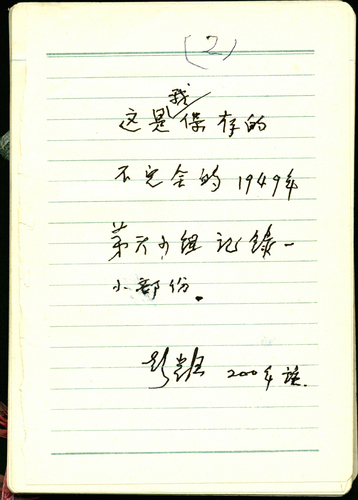 (2)
这是我保存的
不完全的1949年
第六小组记録一
小部份。
2000年誌.